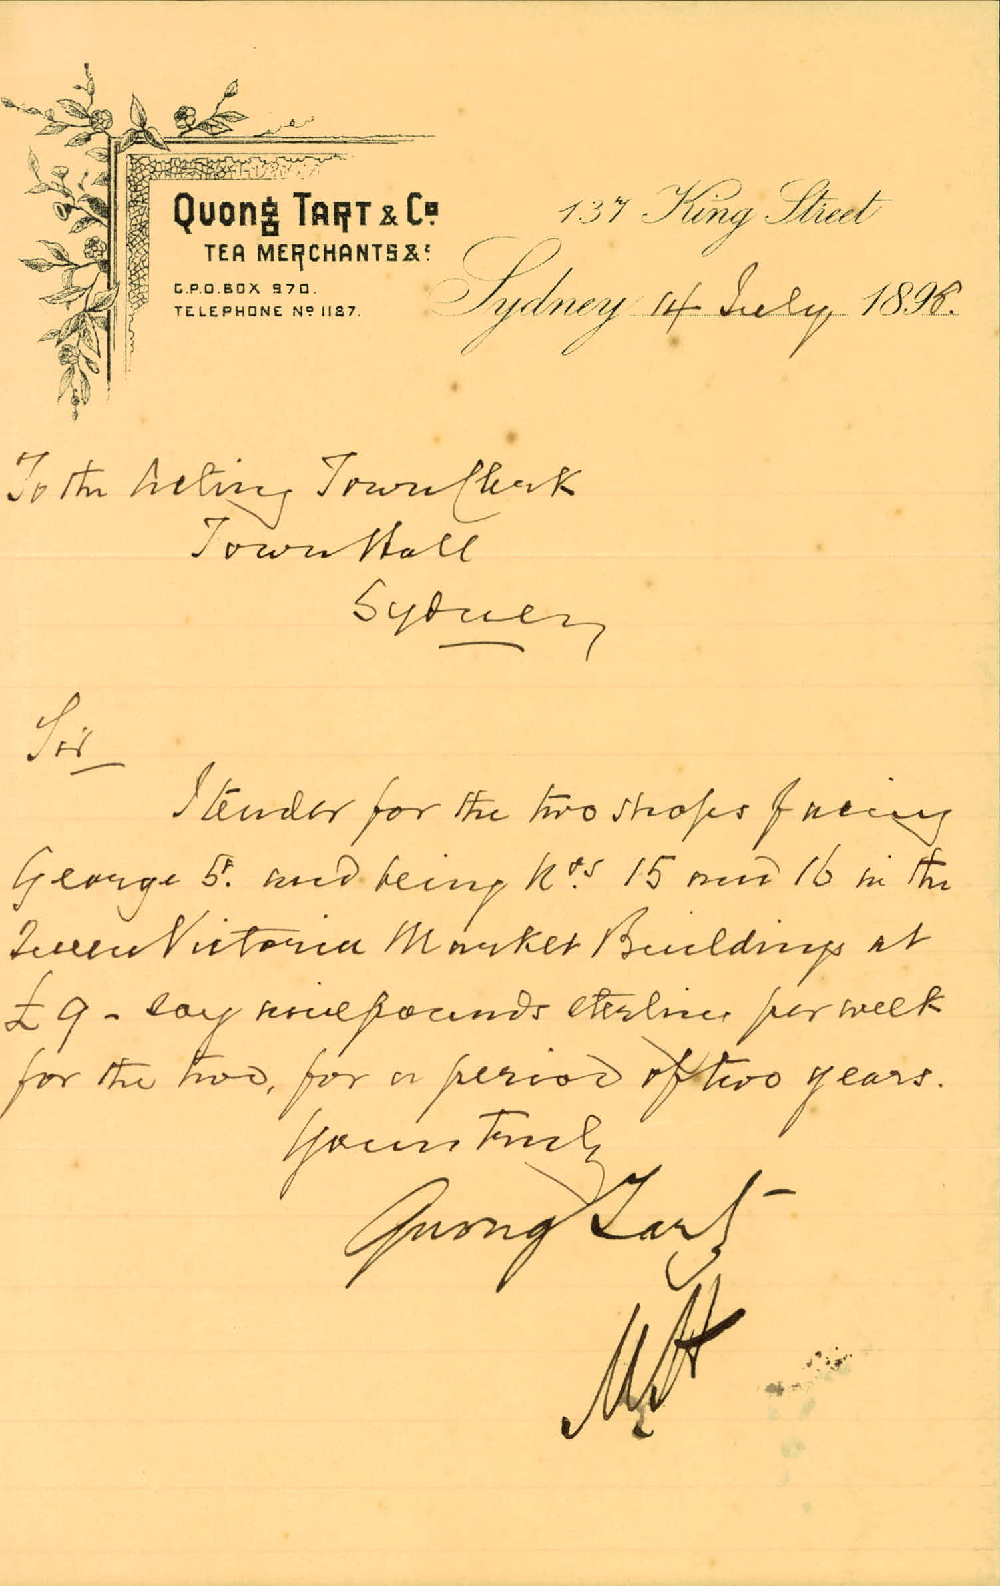 QUONG TART & Co.
TEA MERCHANTS &c
G.P.O. BOX 970.
TELEPHONE No 1187.
137 King Street
Sydney 14 July 1898.
To the Acting Town Clerk
Town Hall
Sydney
Sir
I tender for the two shops facing
George St. and being Nos 15 and 16 in the
Queen Victoria Market Buildings at
£9 - say nine pounds sterling per week
for the two, for a period of two years.
Yours truly
Quong Tart